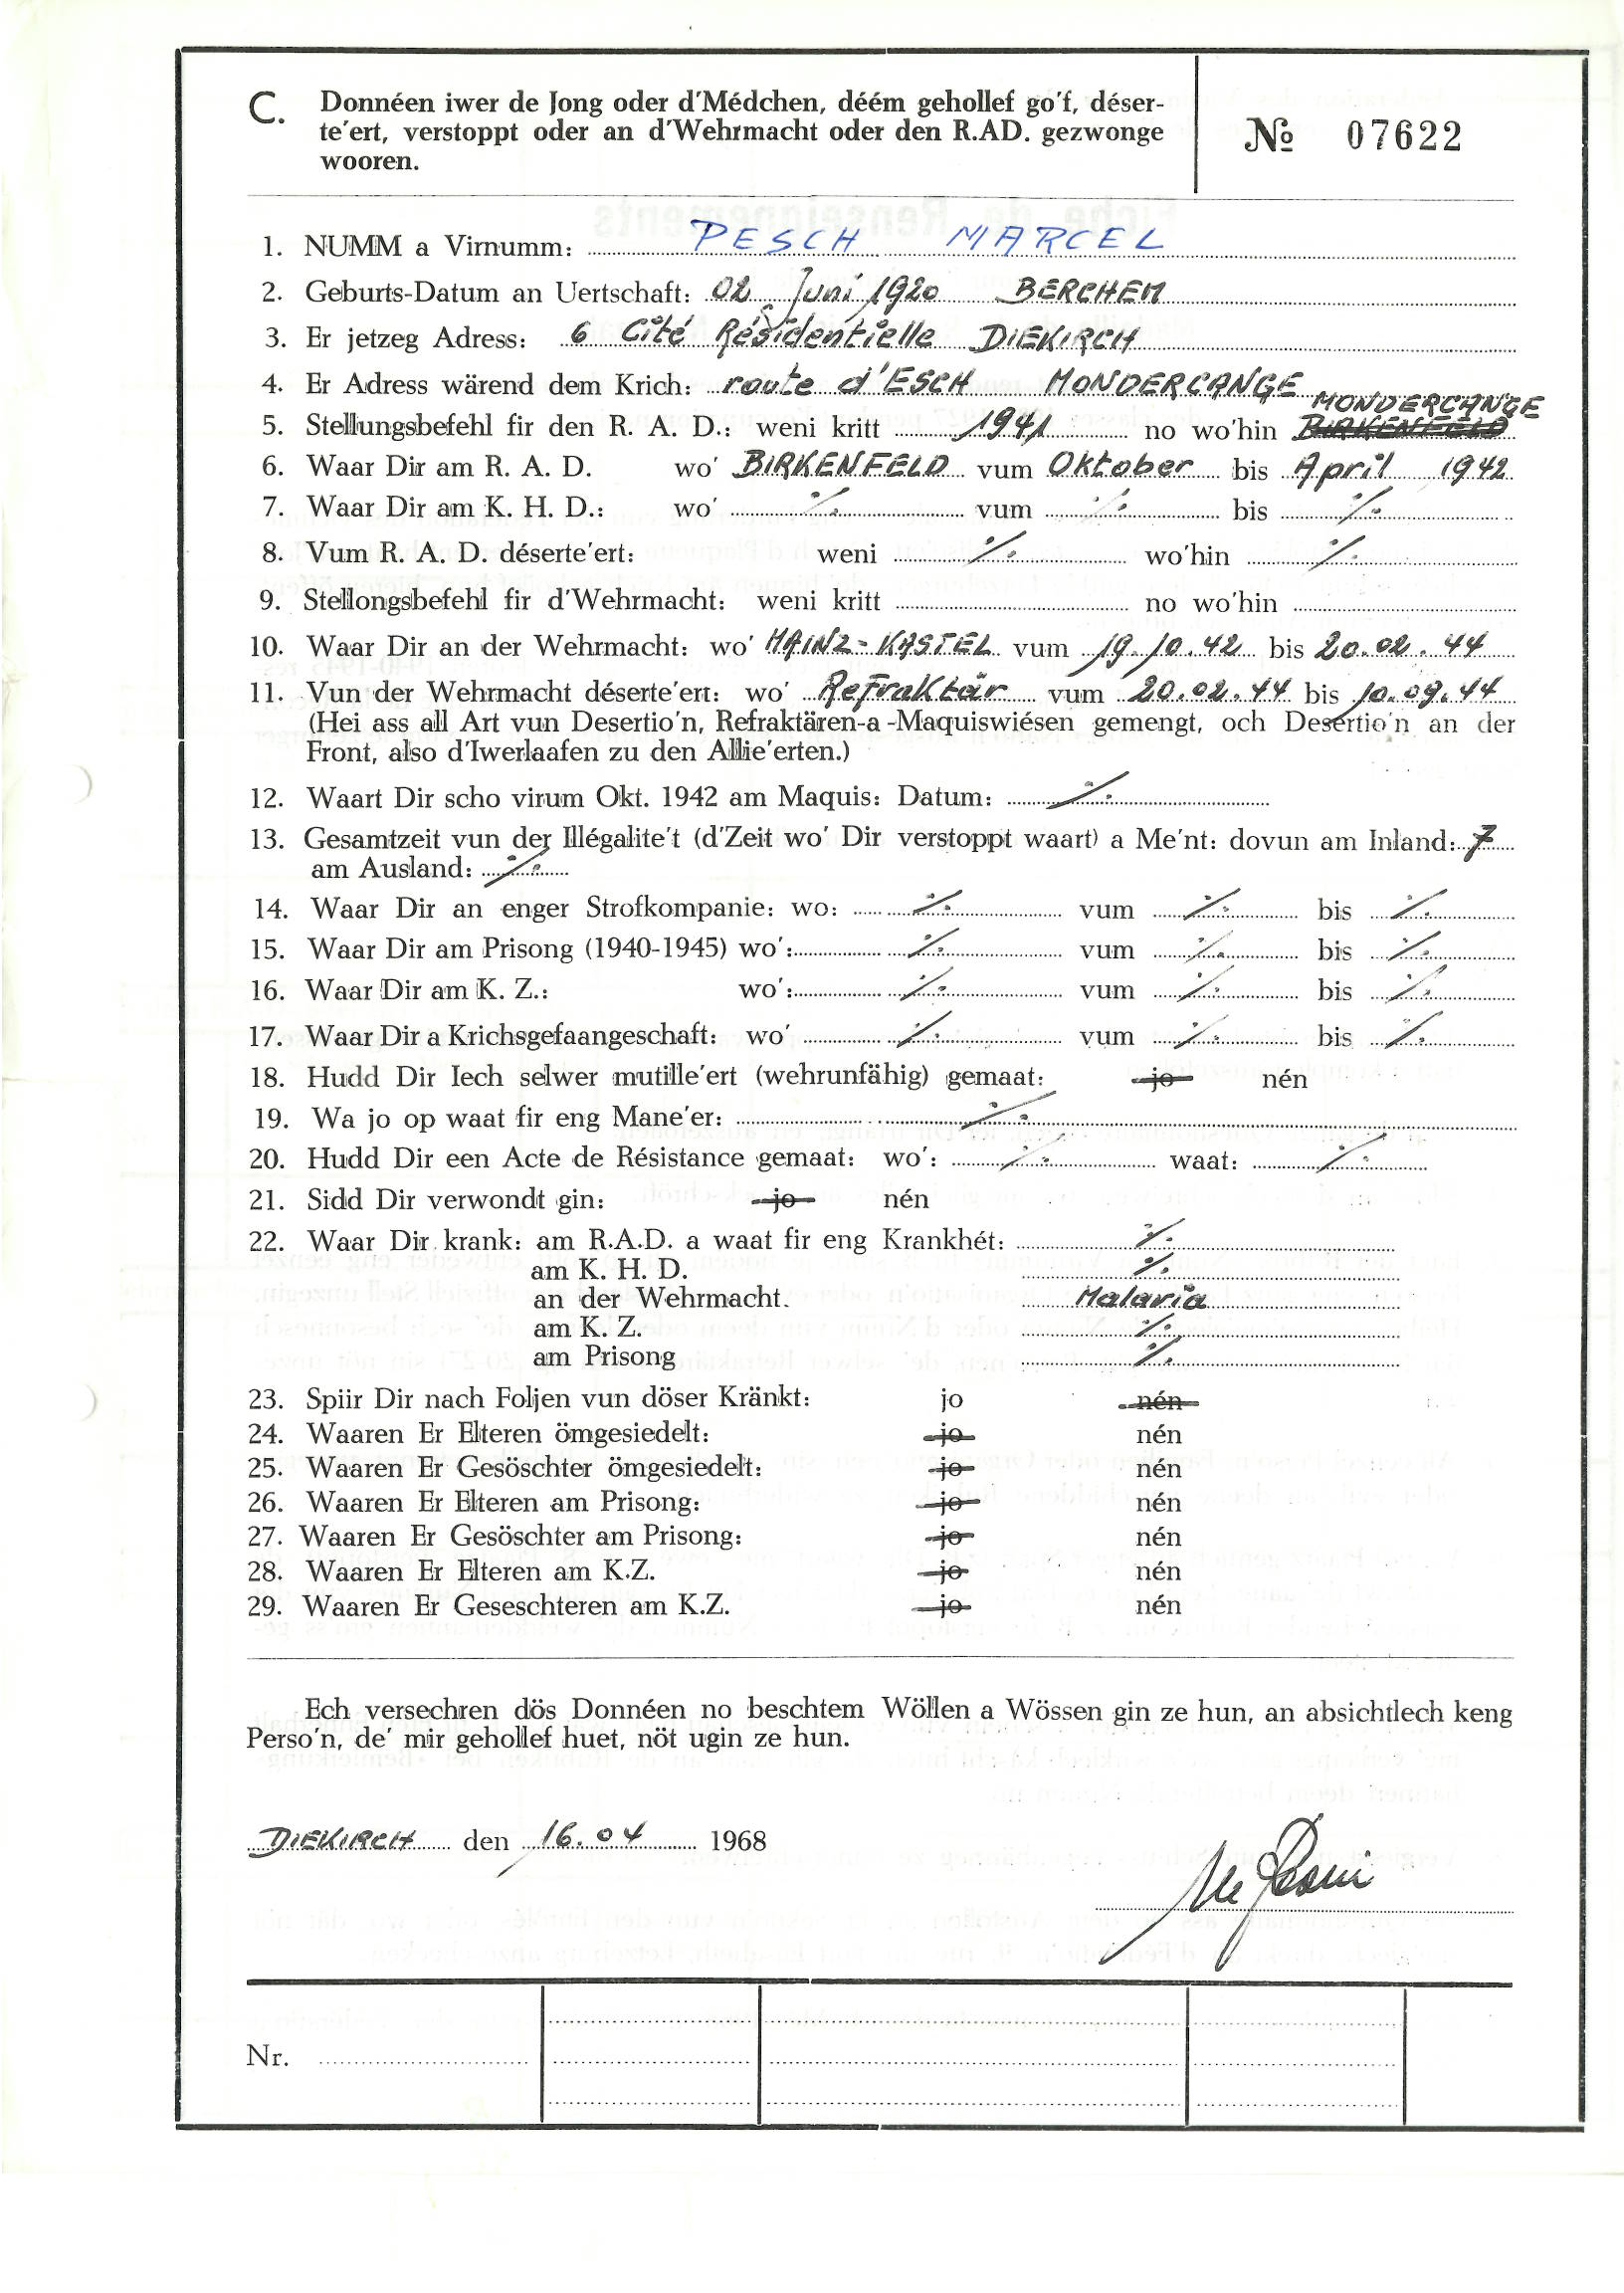 C. Donnéen iwer de Jong oder d'Médchen, déém gehollef go'f, déser-
te'ert, verstoppt oder an d'Wehrmacht oder den R.AD. gezwonge
wooren.
№ 07622
1. NUMM a Virnumm: PESCH MARCEL
2. Geburts-Datum an Uertschaft: 02 Juni 1920 BERCHEM
3. Er jetzeg Adress: 6 Cité Résidentielle DIEKIRCH
4. Er Adress wärend dem Krich: route d'ESCH MONDERCANGE
MONDERCANGE
5. Stellungsbefehl fir den R. A. D.: weni kritt 1941 no wo'hin BIRKENFELD
6. Waar Dir am R. A. D. wo' BIRKENFELD vum Oktober bis April 1942
7. Waar Dir am K. H. D.: wo' ·/. vum ·/. bis ·/.
8. Vum R. A. D. déserte'ert: weni ·/. wo'hin ·/.
9. Stellongsbefehl fir d'Wehrmacht: weni kritt no wo'hin
10. Waar Dir an der Wehrmacht: wo' MAINZ-KASTEL vum 19.10.42 bis 20.02.44
11. Vun der Wehrmacht déserte'ert: wo' Refraktär vum 20.02.44 bis 10.09.44
(Hei ass all Art vun Desertio'n, Refraktären-a-Maquiswiésen gemengt, och Desertio'n an der
Front, also d'Iwerlaafen zu den Allie'erten.)
12. Waart Dir scho virum Okt. 1942 am Maquis: Datum: ·/.
13. Gesamtzeit vun der Illégalite't (d'Zeit wo' Dir verstoppt waart) a Me'nt: dovun am Inland: 7
am Ausland: ·/.
14. Waar Dir an enger Strofkompanie: wo: ·/. vum ·/. bis ·/.
15. Waar Dir am Prisong (1940-1945) wo': ·/. vum ·/. bis ·/.
16. Waar Dir am K. Z.: wo': ·/. vum ·/. bis ·/.
17. Waar Dir a Krichsgefaangeschaft: wo' ·/. vum ·/. bis ·/.
18. Hudd Dir Iech selwer mutille'ert (wehrunfähig) gemaat: jo nén
19. Wa jo op waat fir eng Mane'er: ·/.
20. Hudd Dir een Acte de Résistance gemaat: wo': ·/. waat: ·/.
21. Sidd Dir verwondt gin: jo nén
22. Waar Dir krank: am R.A.D. a waat fir eng Krankhét: ·/.
am K. H. D. ·/.
an der Wehrmacht. Malaria
am K. Z. ·/.
am Prisong ·/.
23. Spiir Dir nach Foljen vun döser Kränkt: jo nén
24. Waaren Er Elteren ömgesiedelt: jo nén
25. Waaren Er Gesöschter ömgesiedelt: jo nén
26. Waaren Er Elteren am Prisong: jo nén
27. Waaren Er Gesöschter am Prisong: jo nén
28. Waaren Er Elteren am K.Z. jo nén
29. Waaren Er Geseschteren am K.Z. jo nén
Ech versechren dös Donnéen no beschtem Wöllen a Wössen gin ze hun, an absichtlech keng
Perso'n, de' mir gehollef huet, nöt ugin ze hun.
DIEKIRCH den 16.04 1968
Nr.